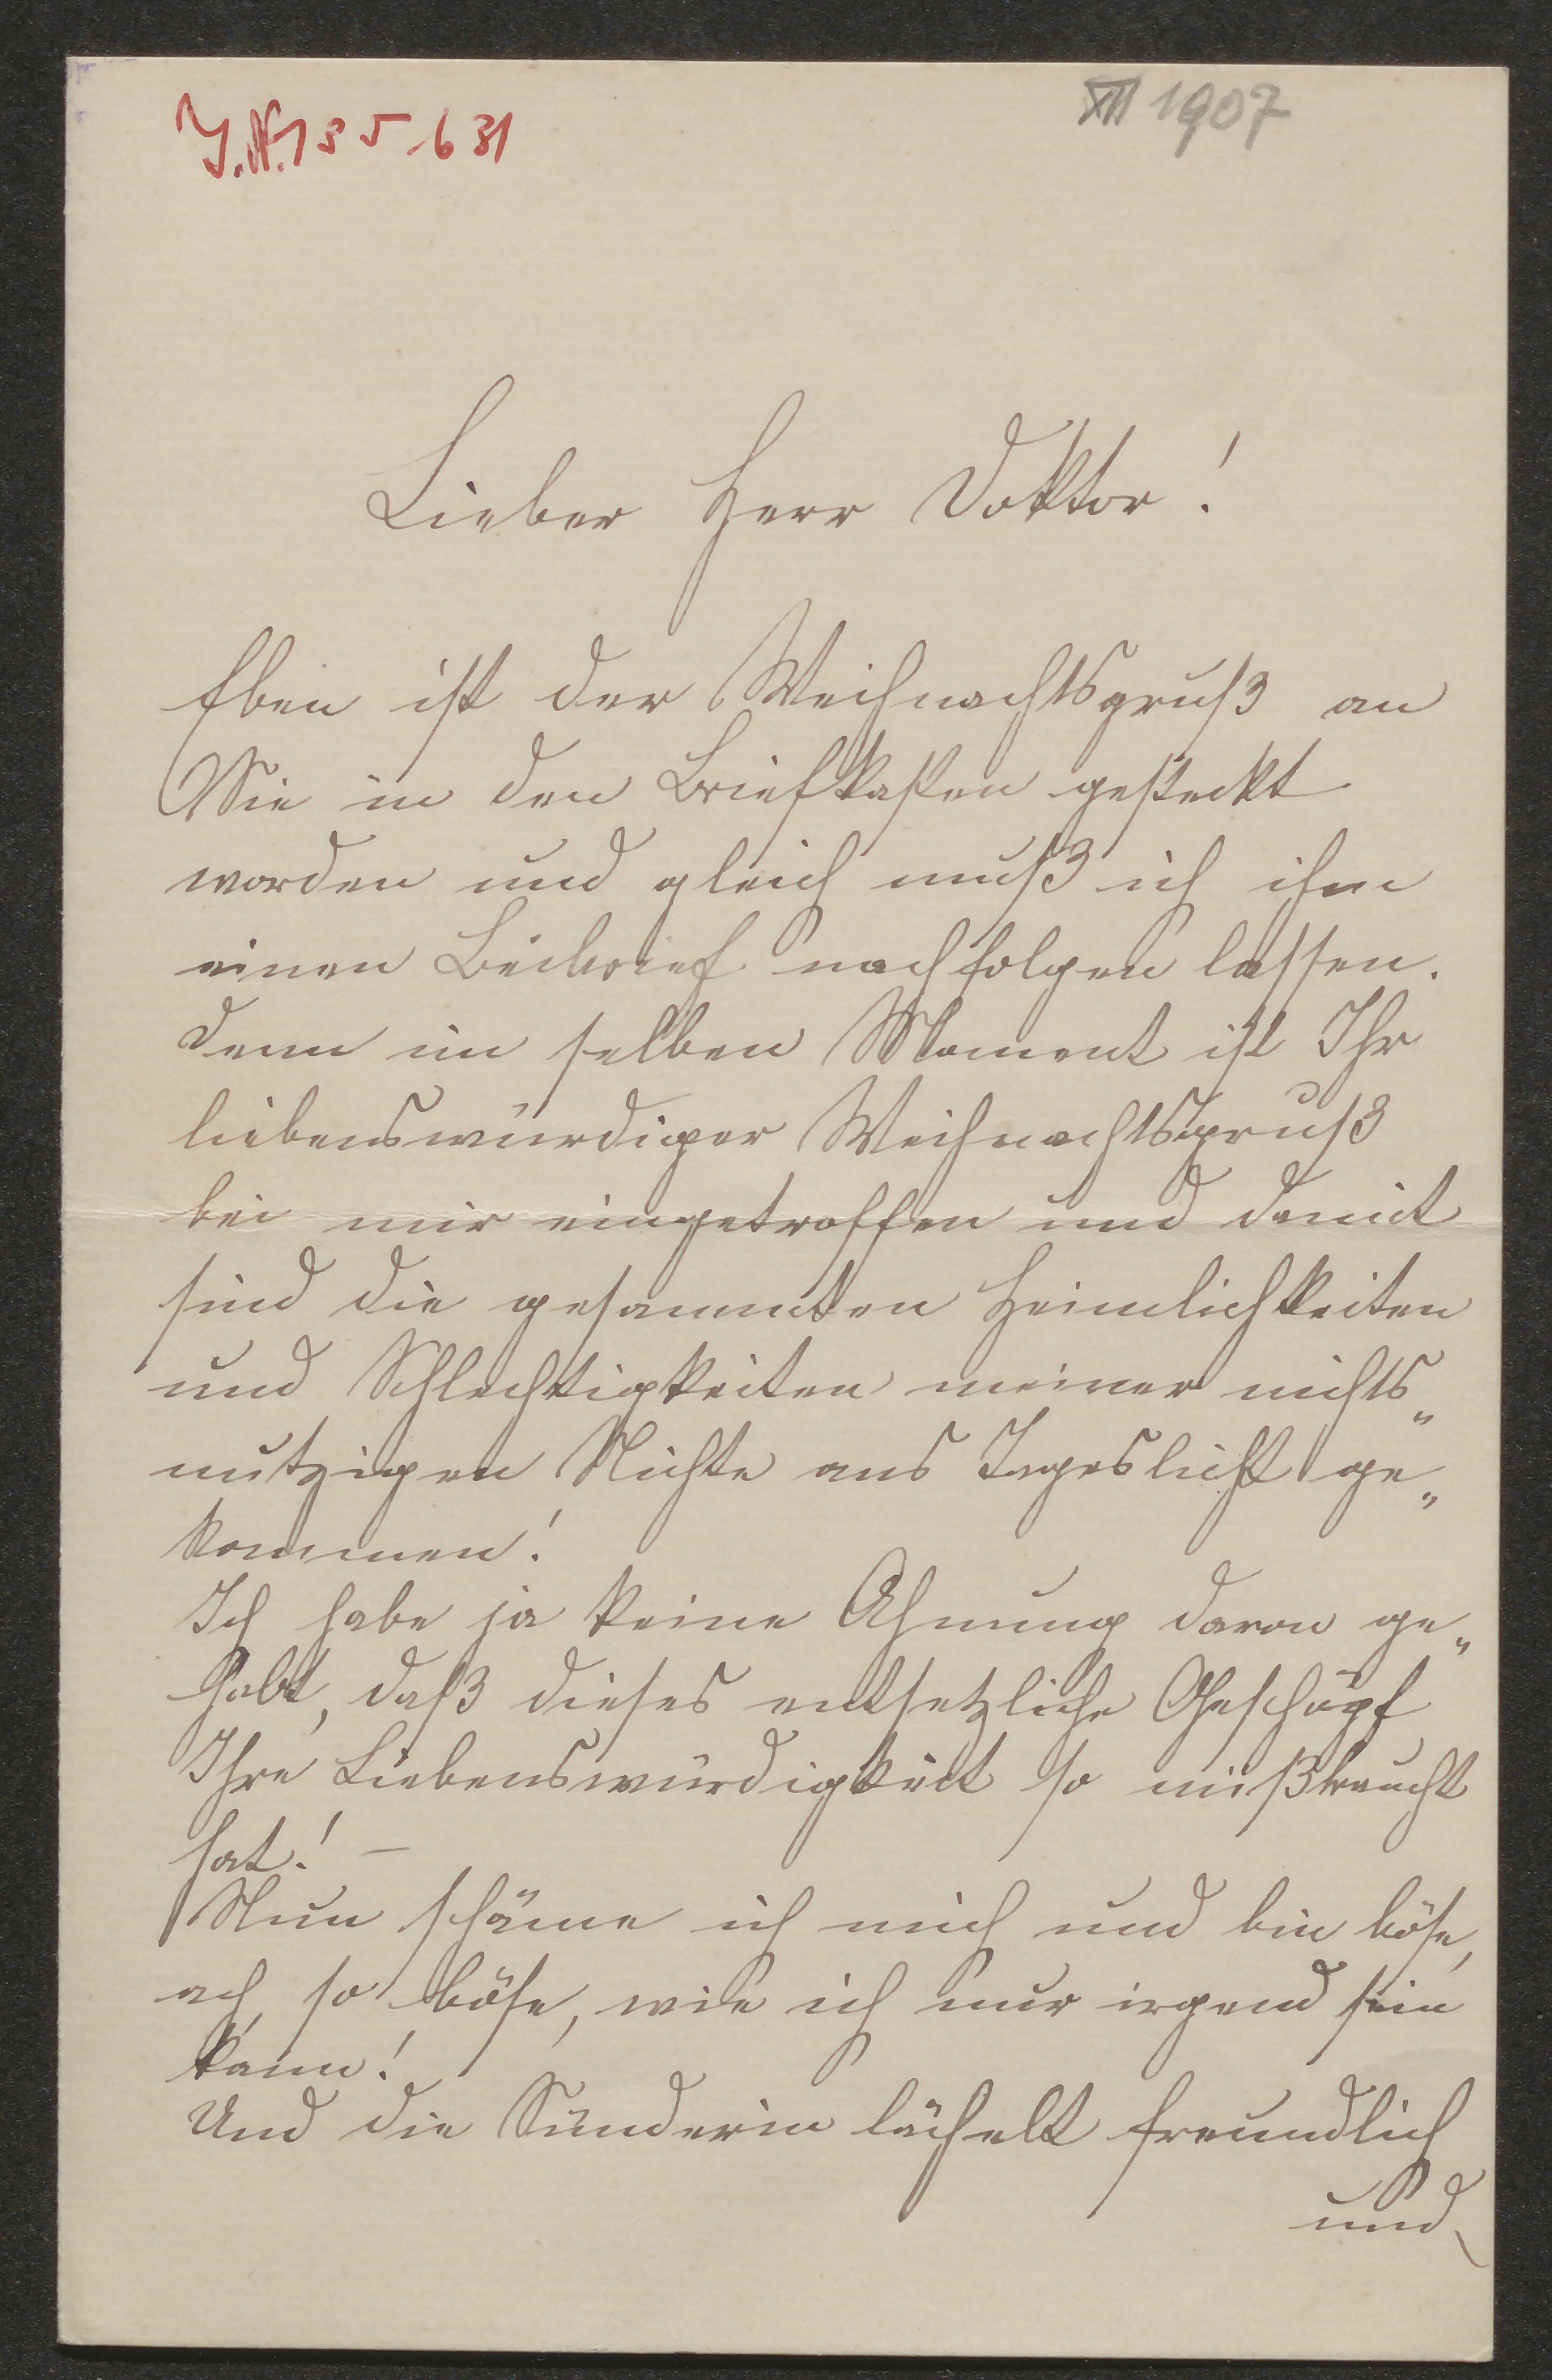 J.N. 135.631
XII 1907
Lieber Herr Doktor!
Eben ist der Weihnachtsgruß an
Sie in den Briefkasten gesteckt
worden und gleich muß ich ihm
einen nachfolgen lassen.
Denn im selben Moment ist Ihr
liebenswürdiger Weihnachtsgruß
bei mir eingetroffen und damit
sind die gesammten Heimlichkeiten
und Schlechtigkeiten meiner nichts„
nutzigen Nichte ans Tageslicht ge„
kommen!
Ich habe ja keine Ahnung davon ge„
habt, daß dieses entsetzliche Geschöpf
Ihre Liebenswürdigkeit so mißbraucht
hat! –
Nun schäme ich mich und bin böse,
ach, so böse, wie ich nur irgend sein
kann!
Und die Sünderin lächelt freundlich
und